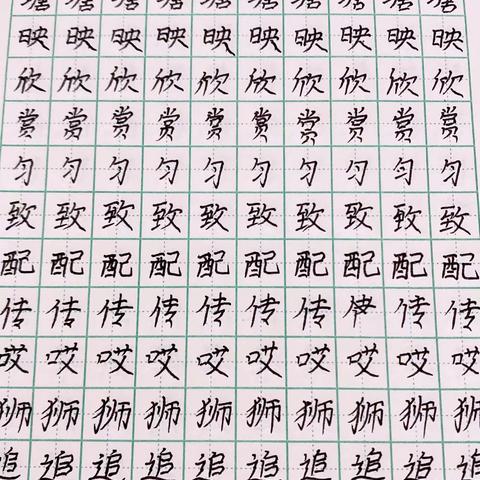 映映映映映映映映映映
欣欣欣欣欣欣欣欣欣欣
赏赏赏赏赏赏赏赏赏赏
匀匀匀匀匀匀匀匀匀匀
致致致致致致致致致致
配配配配配配配配配配
传传传传传传传伊传传
哎哎哎哎哎哎哎哎哎哎
狮狮狮狮狮狮狮狮狮狮
追追追追追追追追追追